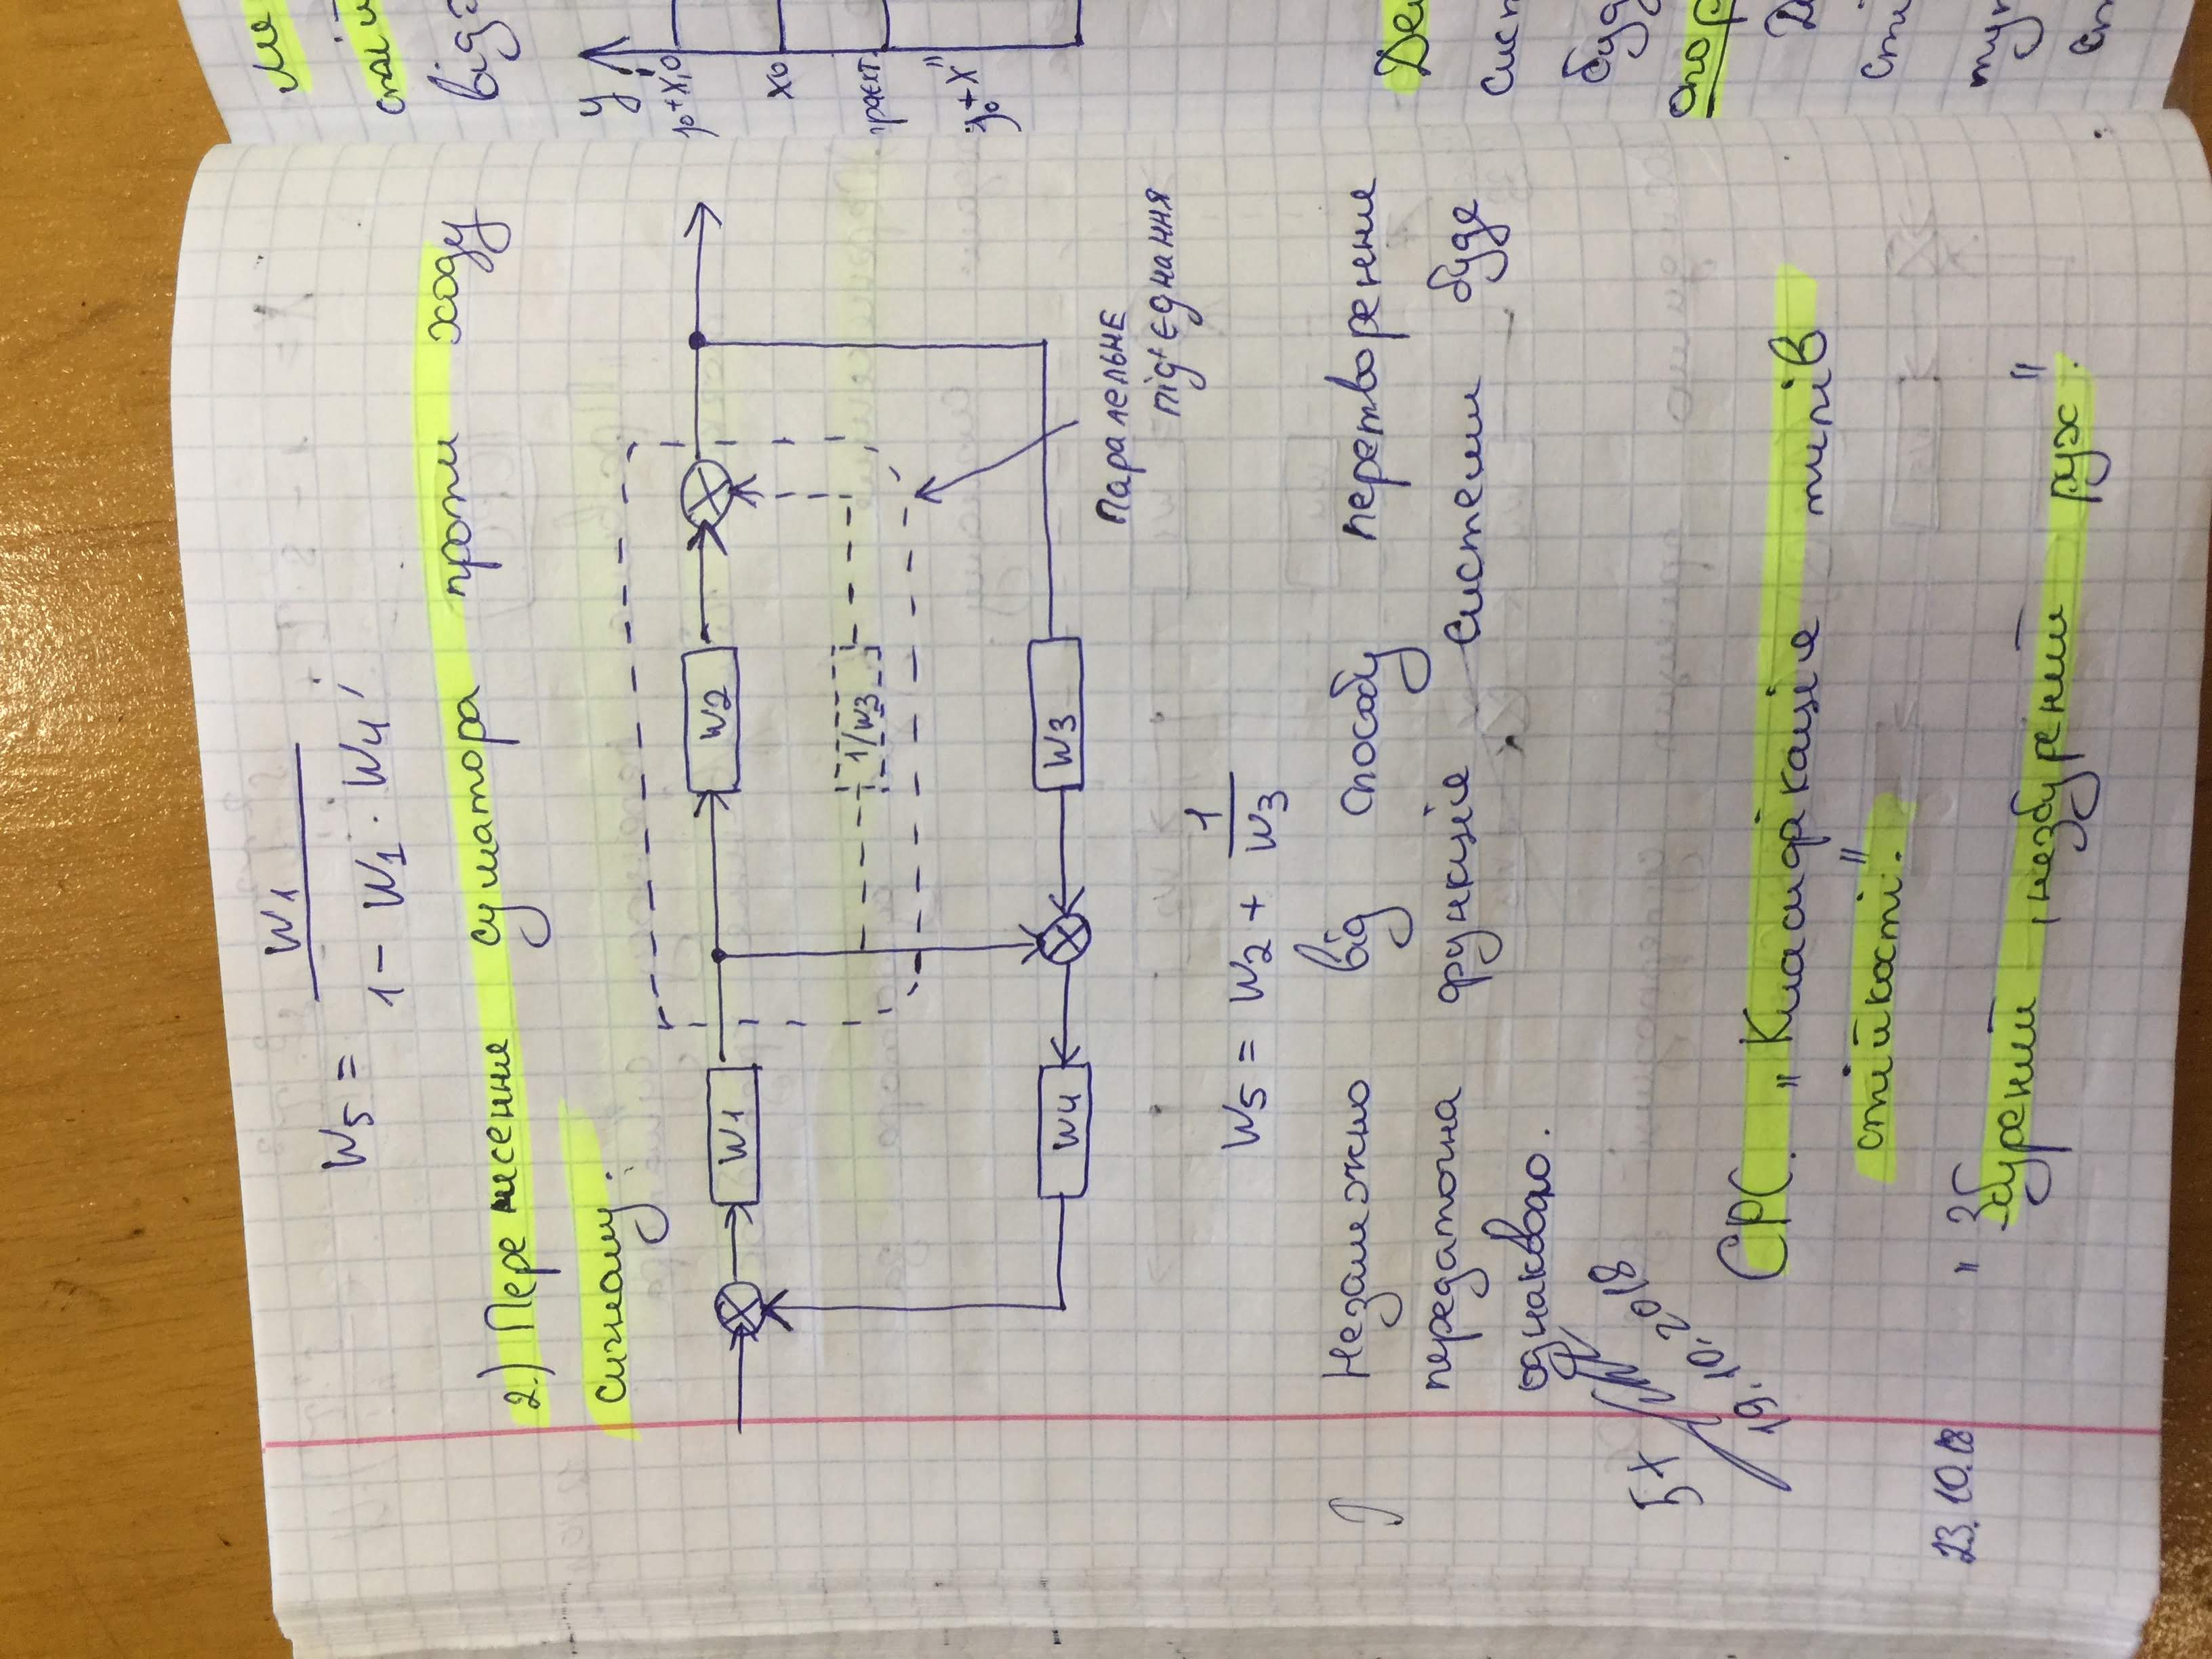 W5 = W1 / (1 - W1 · W4) ;
2.) Перенесення суматора проти ходу
сигналу.
W1
W2
1/W3
W4
W3
Паралельне
під'єднання
W5 = W2 + 1/W3
Незалежно від способу перетворення
передаточна функція системи буде
однаковою.
5+
19.10.2018
СРС. „Класифікація типів
стійкості."
23.10.18
" Збурений, незбурений рух".
стій
y
x0
Де
сист
буд